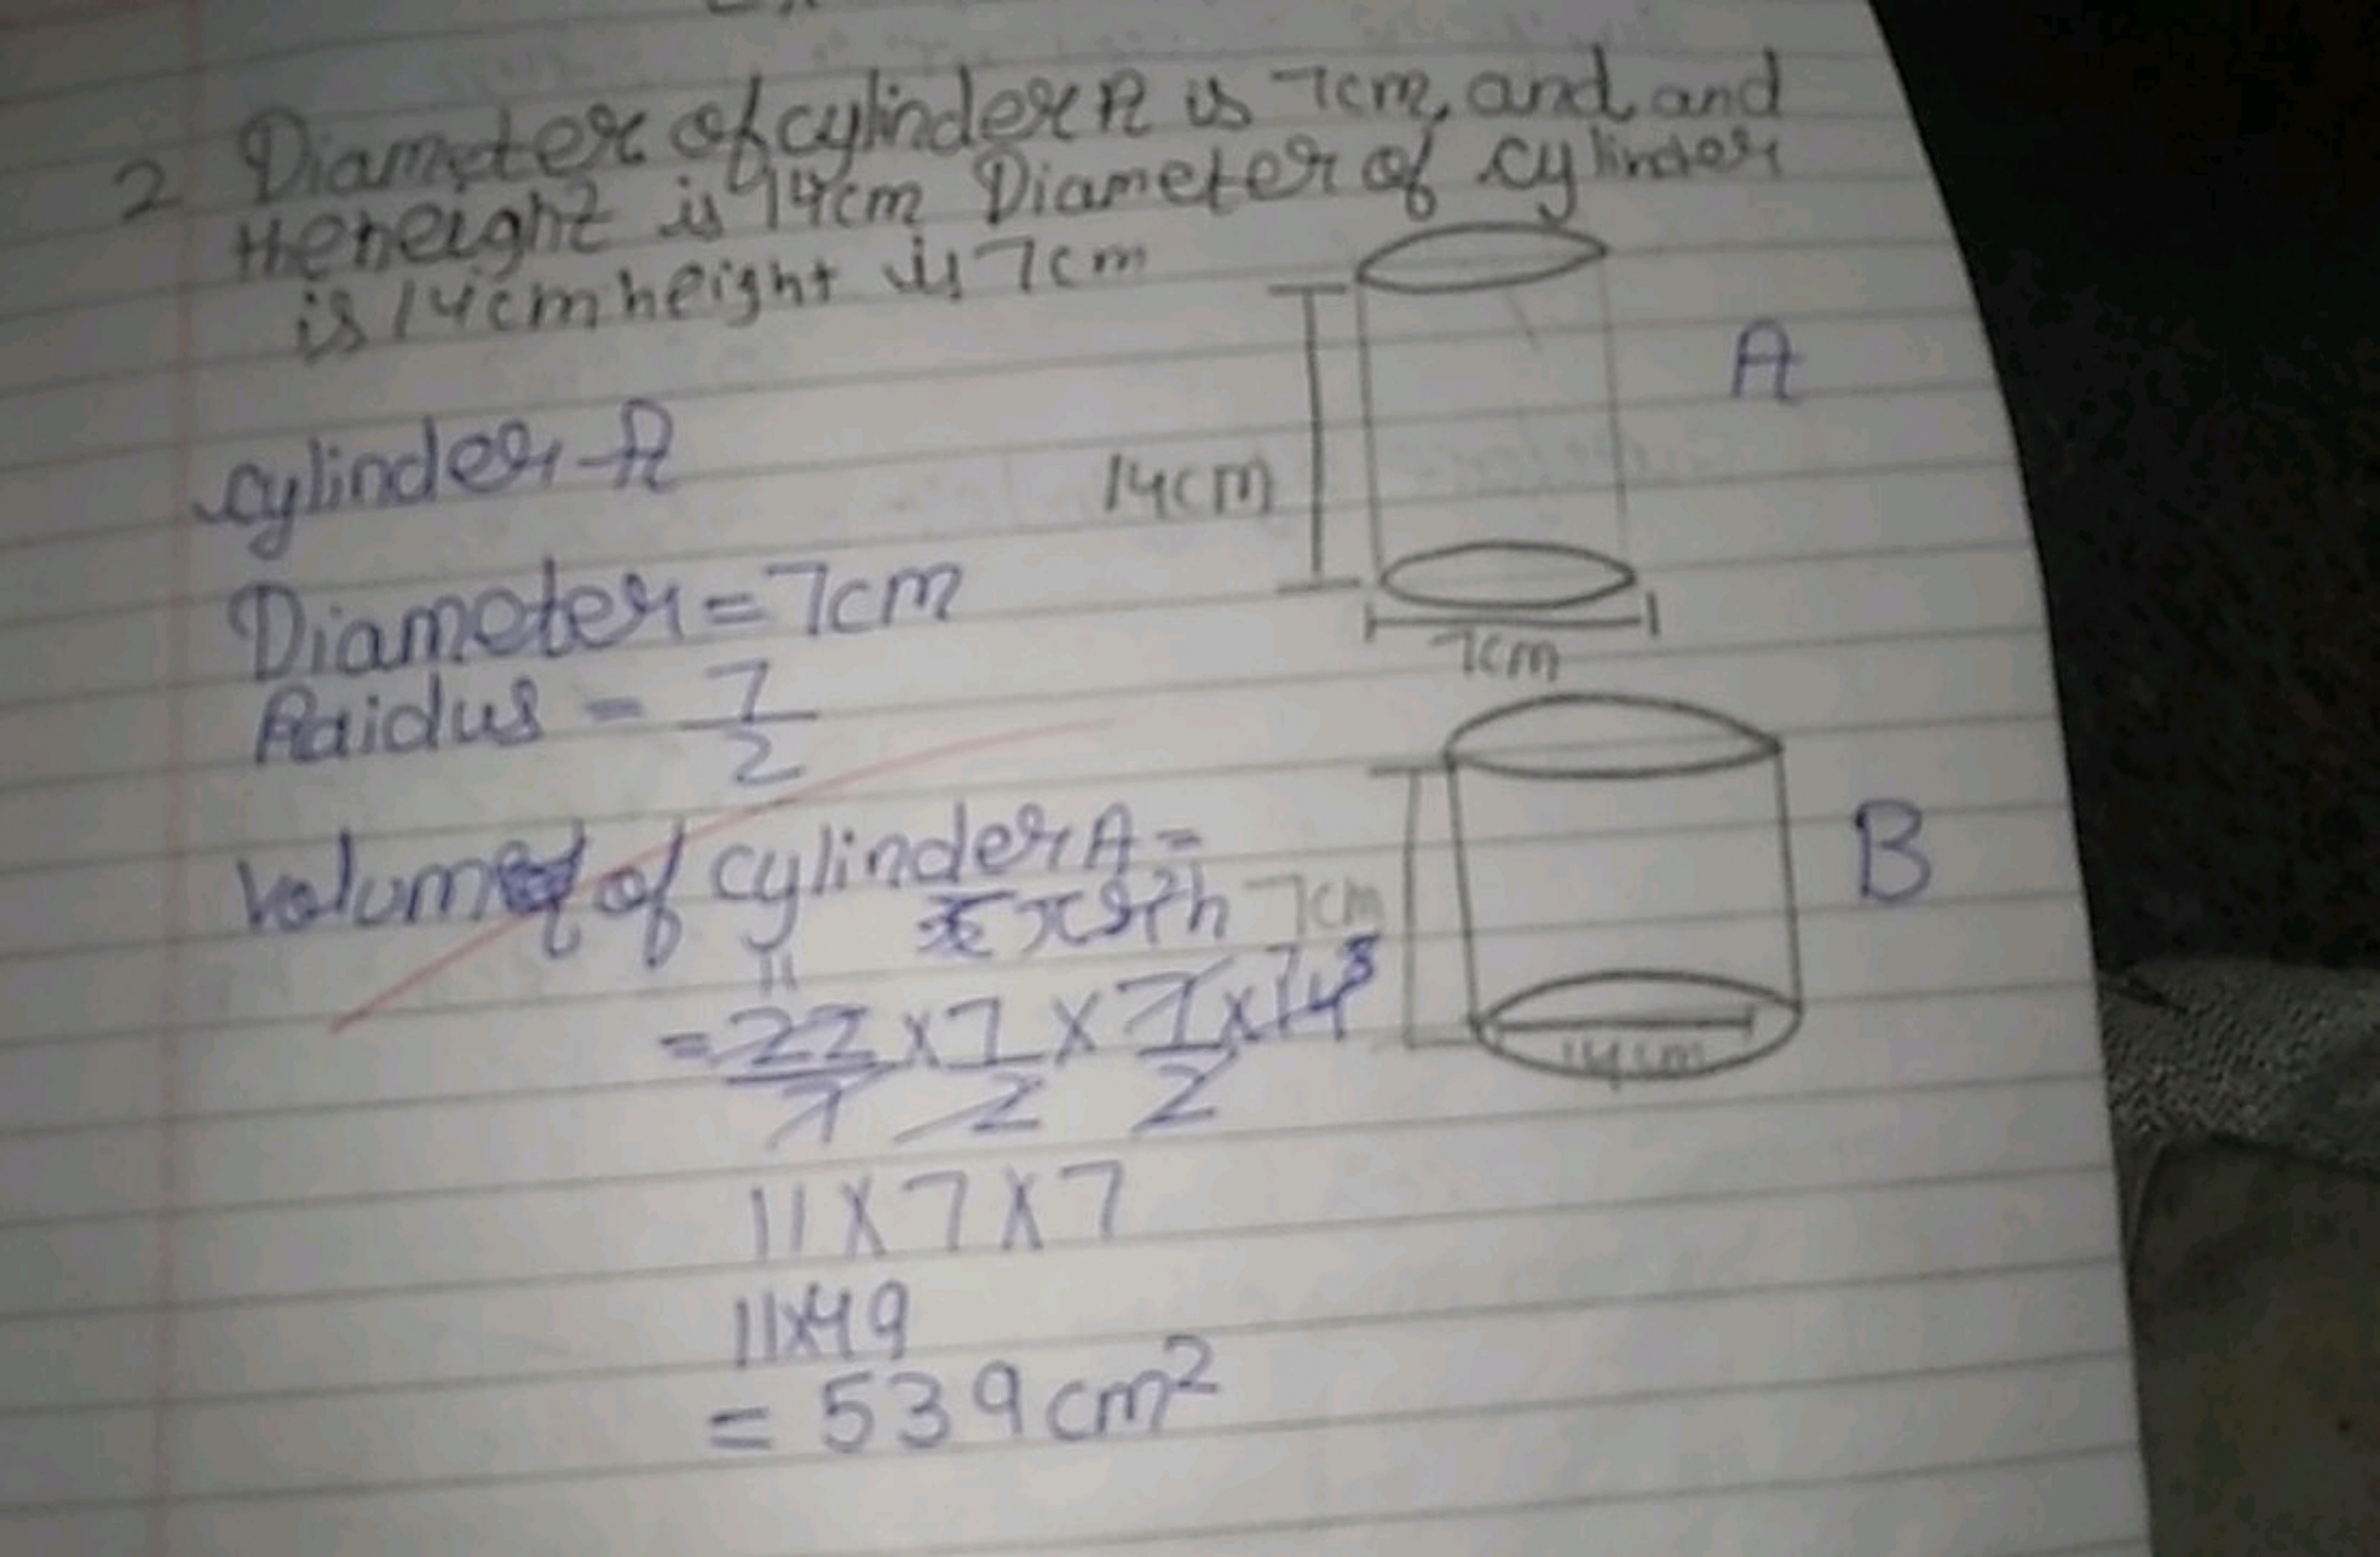 2 Diameter of cylinder A is 7cm, and and
Heheight is 14cm Diameter of cylinder
is 14cm height is 7cm
A
cylinder A
14cm
Diameter = 7cm
7cm
Raidus = 7/2
B
volume of cylinder A =
πr²h
7cm
11 7
= 22/7 x 7/2 x 7/2 x 14
14cm
11 x 7 x 7
11x49
= 539 cm²